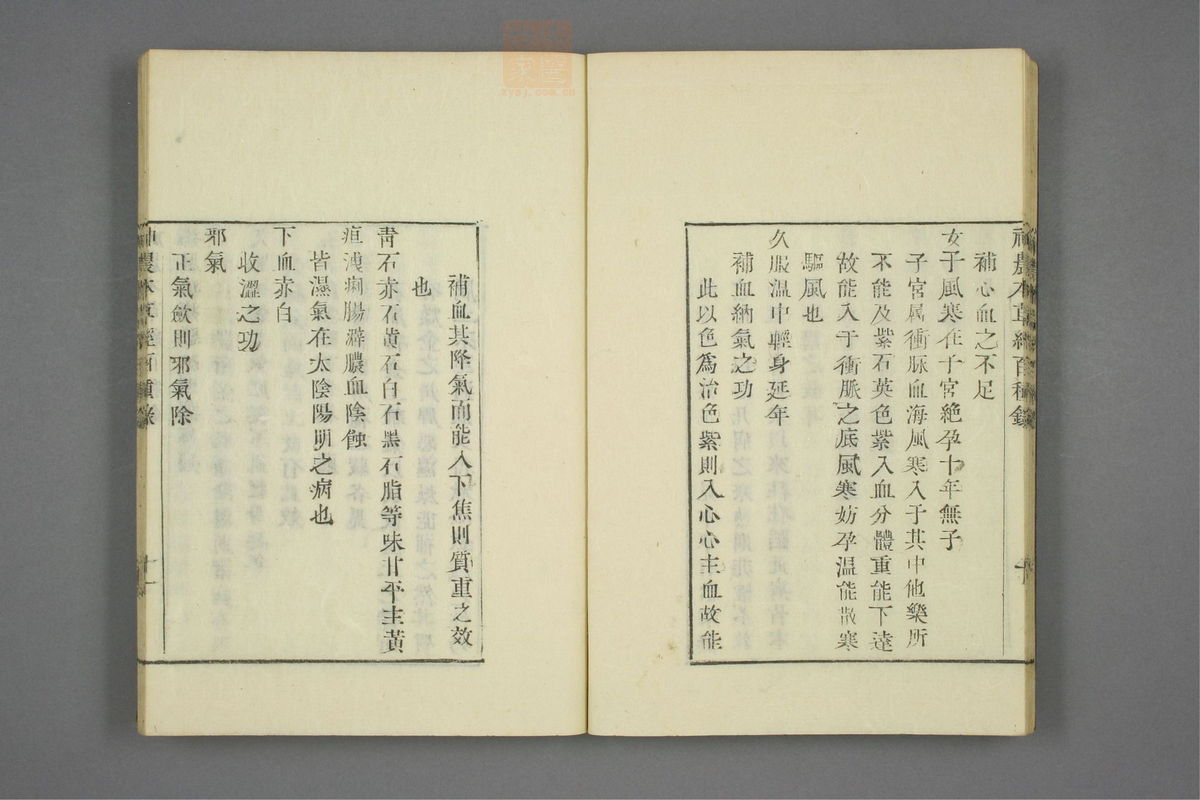 補心血之不足
女子風寒在子宮絕孕十年無子
子宮屬衝脈血海風寒入于其中他藥所
不能及紫石英色紫入血分體重能下達
故能入于衝脈之底風寒妨孕溫能散寒
驅風也
久服溫中輕身延年
補血納氣之功
此以色爲治色紫則入心心主血故能
補血其降氣而能入下焦則質重之效
也
靑石赤石黃石白石黑石脂等味甘平主黃
疸洩痢腸澼膿血陰蝕
皆濕氣在太陰陽明之病也
下血赤白
收澀之功
邪氣
正氣斂則邪氣除
神農本草經百種錄
十一
zysj.com.cn